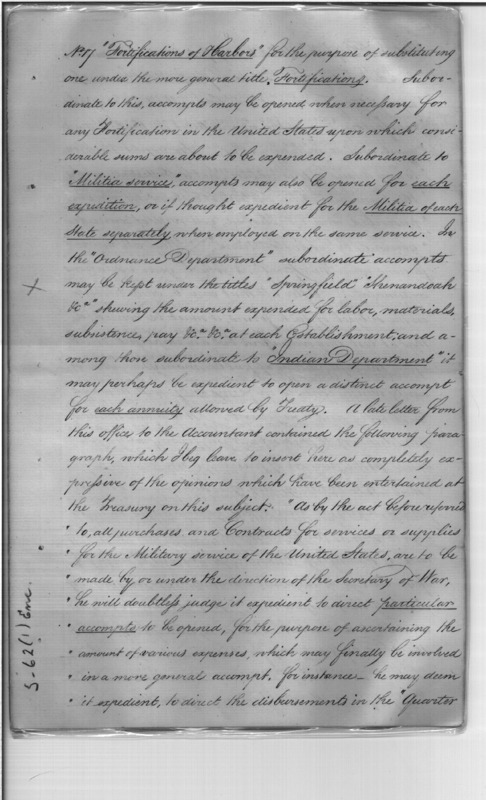 No 17 "Fortifications of Harbors" for the purpose of substituting
one under the more general title, Fortifications. Subor-
dinate to this, accompts may be opened when necessary for
any Fortification in the United States upon which consi-
derable sums are about to be expended. Subordinate to
"Militia services," accompts may also be opened for each
expedition, or if thought expedient for the Militia of each
State separately, when employed on the same service. In
the "Ordnance Department" subordinate accompts
may be kept under the titles "Springfield" "Shenandoah
&ca" shewing the amount expended for labor, materials,
subsistence, pay &ca &ca at each Establishment, and a-
mong those subordinate to "Indian Department" it
may perhaps be expedient to open a distinct accompt
for each annuity allowed by Treaty. A late letter from
this office to the Accountant contained the following para-
graph, which I beg leave to insert here as completely ex-
pressive of the opinions which have been entertained at
the Treasury on this subject: "As by the act before referred
" to, all purchases and Contracts for services or supplies
" for the Military service of the United States, are to be
" made by or under the direction of the Secretary of War,
" he will doubtless judge it expedient to direct particular
" accompts to be opened, for the purpose of ascertaining the
" amount of various expenses, which may finally be involved
" in a more general accompt. for instance – he may deem
" it expedient, to direct the disbursements in the "Quarter
X
S-62(1) Enc.